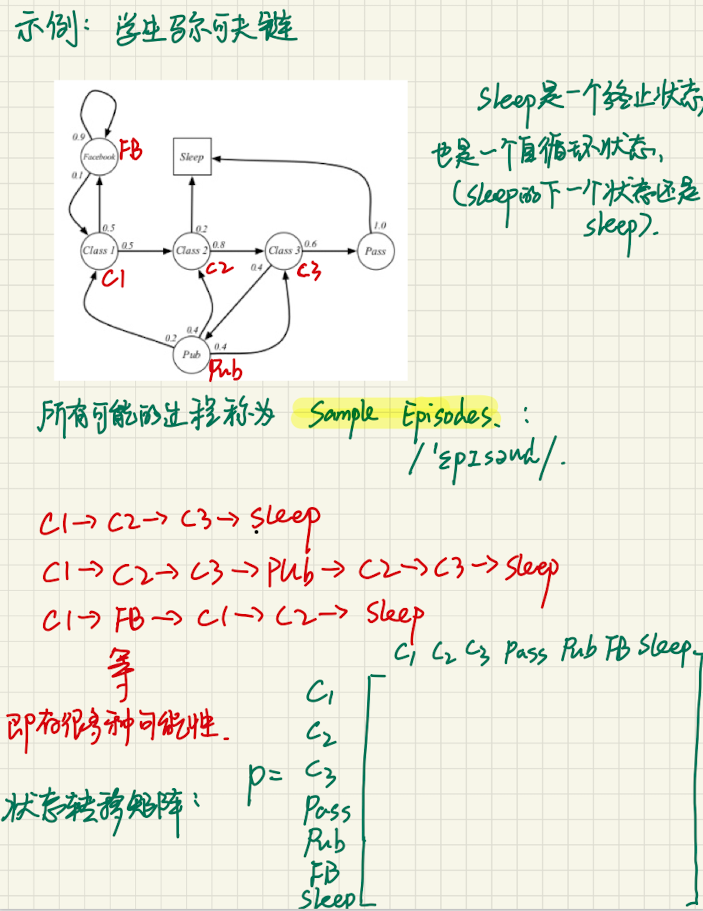 示例：学生马尔可夫链
Sleep是一个终止状态,
也是一个自循环状态,
(sleep的下一个状态还是
sleep).
0.9
Facebook
FB
0.1
Sleep
0.5
0.2
1.0
Class 1
0.5
Class 2
0.8
Class 3
0.6
Pass
C1
C2
C3
0.4
0.2
0.4
0.4
Pub
Pub
所有可能的过程称为 Sample Episodes. :
/'ɛpɪsəʊd/.
C1→C2→C3→Sleep
C1→C2→C3→Pub→C2→C3→Sleep
C1→FB→C1→C2→Sleep
等
即有很多种可能性.
C1 C2 C3 Pass Pub FB Sleep
C1
C2
P= C3
状态转移矩阵：
Pass
Pub
FB
Sleep